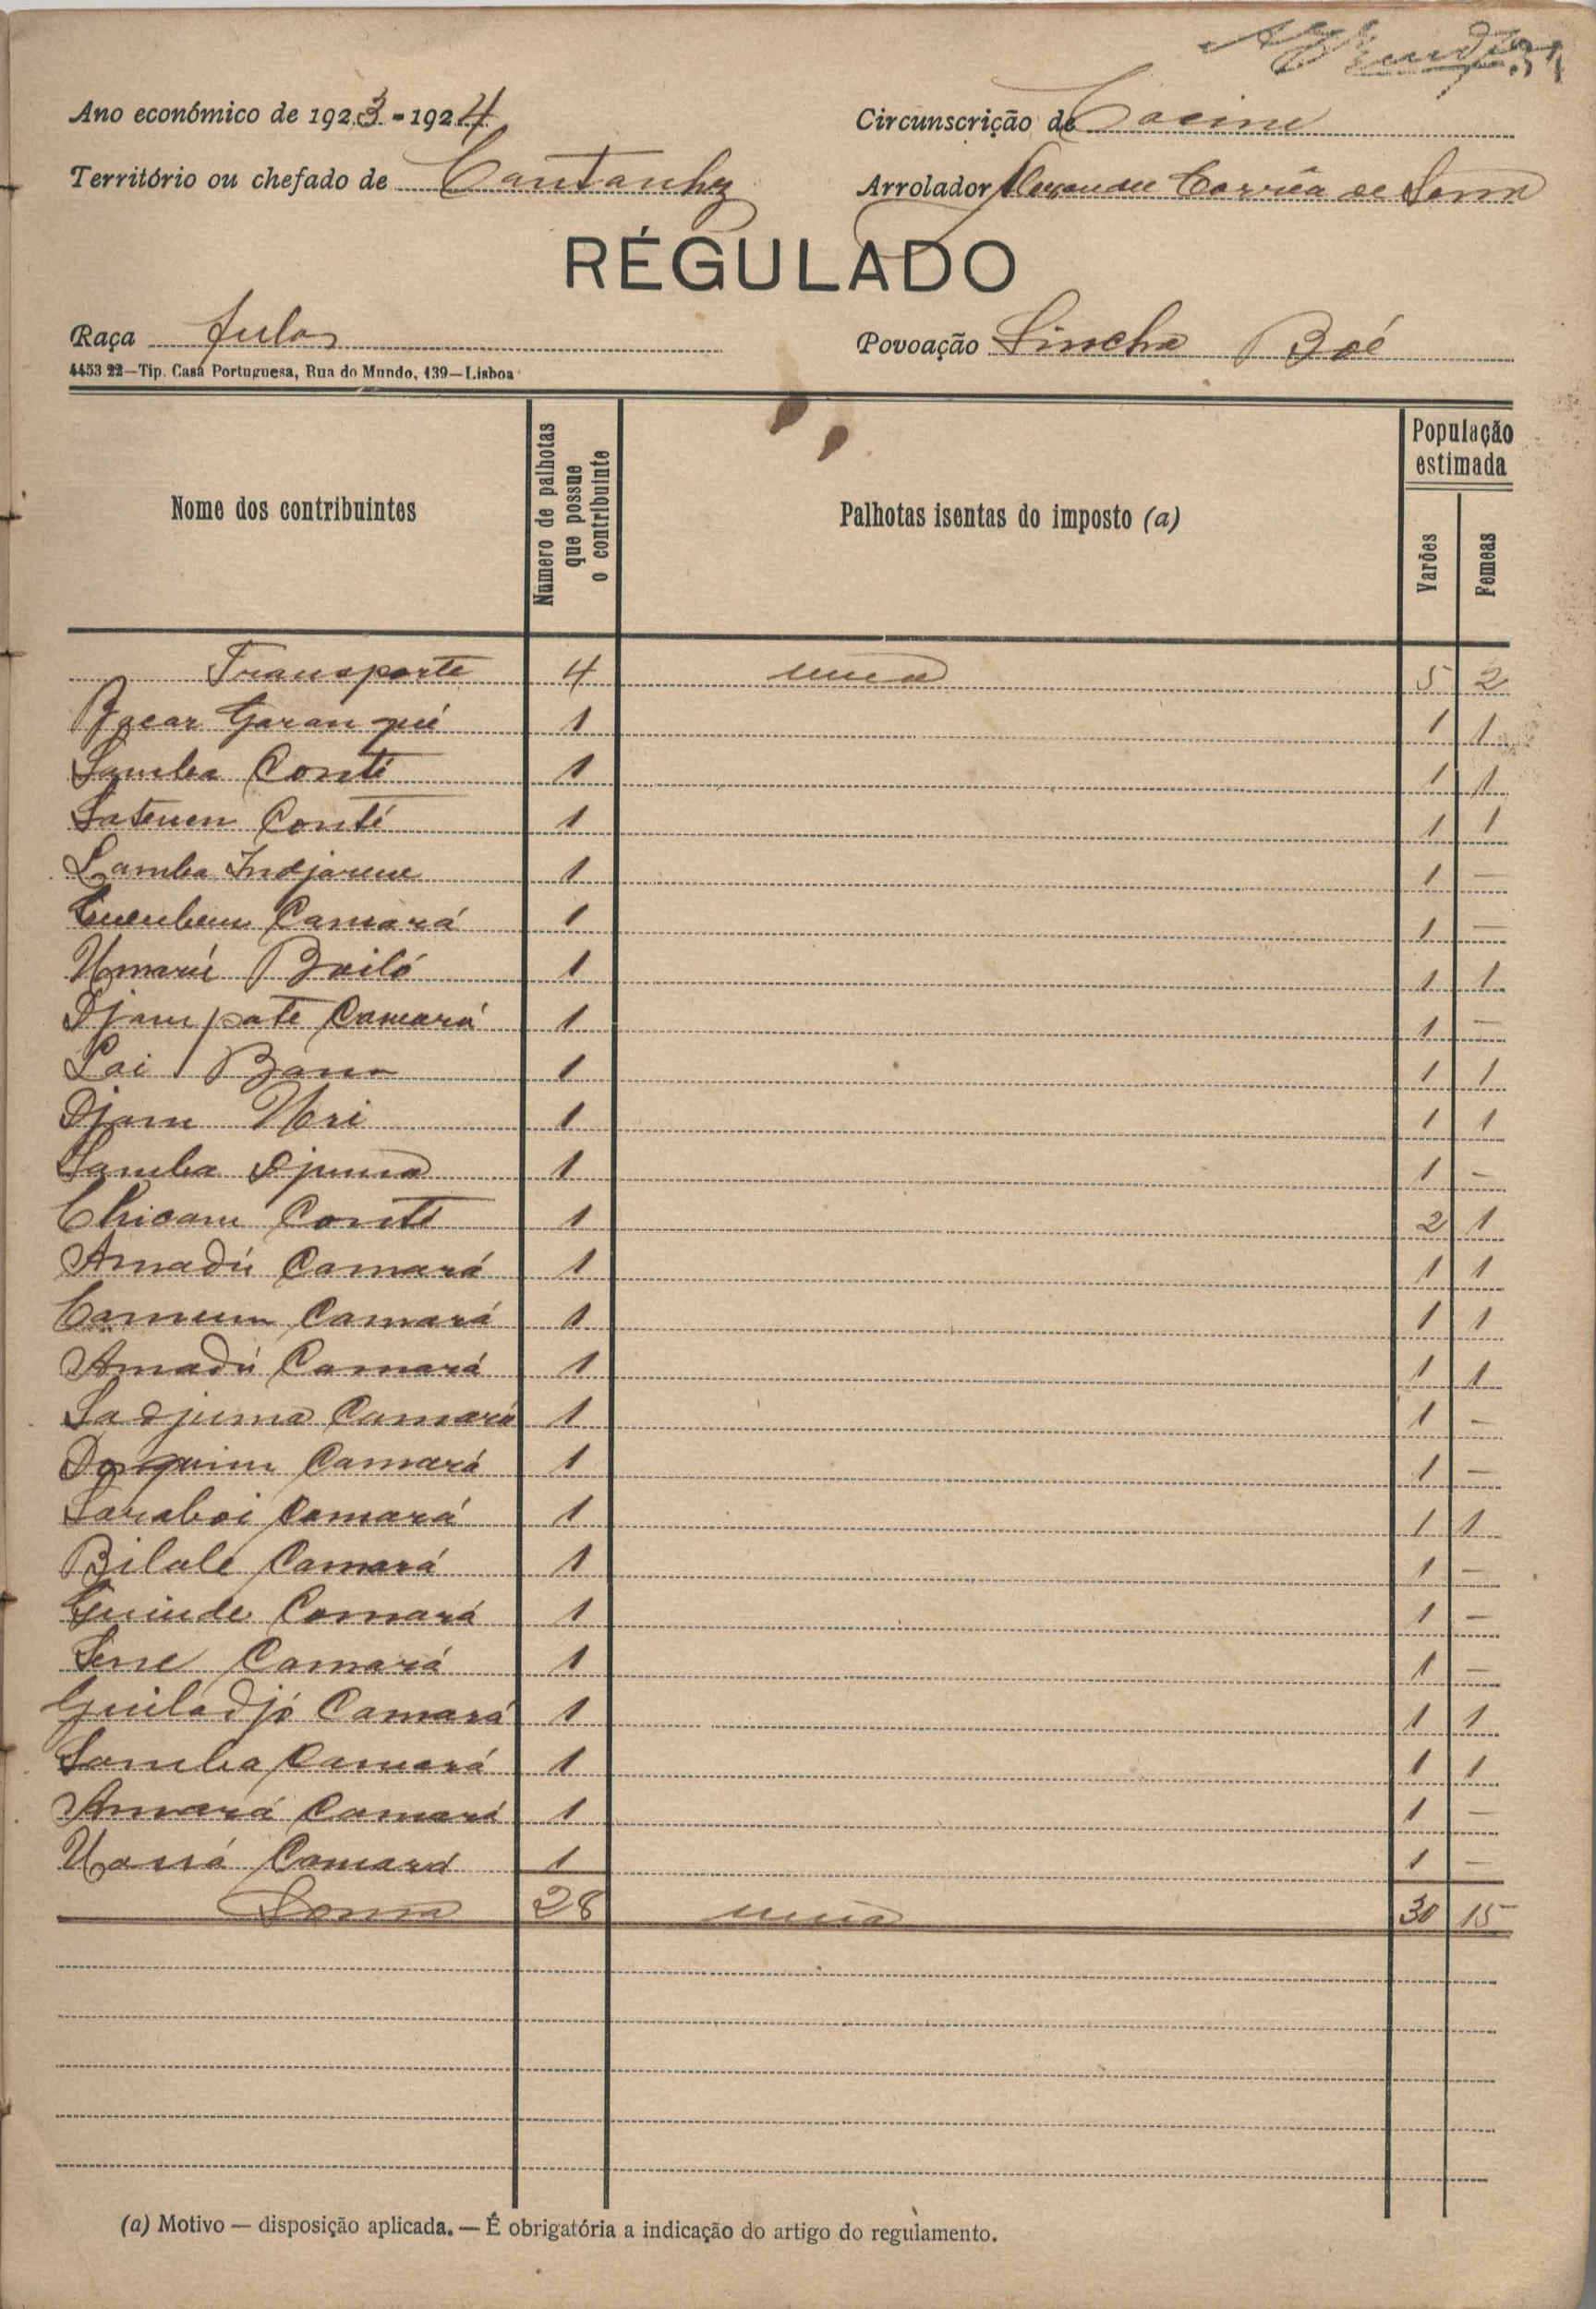 Ano económico de 1923-1924
Circunscrição de Cacine
Território ou chefado de Cantanhez
Arrolador Alexandre Corrêa de
RÉGULADO
Raça fulas
Povoação Sincha Boé
4453 22—Tip. Casa Portuguesa, Rua do Mundo, 139—Lisboa
Nome dos contribuintes
Número de palhotas que possue o contribuinte
Palhotas isentas do imposto (a)
População estimada
Varões
Femeas
Transporte 4 uma 5 2
1 1 1
Samba Conté 1 1 1
Conté 1 1 1
Samba 1 1 —
Camará 1 1 —
Umarú Bailó 1 1 1
Djam pate Camará 1 1 —
1 1 1
Djam Uri 1 1 1
Samba Djuma 1 1 —
Conté 1 2 1
Amadú Camará 1 1 1
Camará 1 1 1
Amadú Camará 1 1 1
Sadjuma Camará 1 1 —
Camará 1 1 —
Saraboi Camará 1 1 1
Bilale Camará 1 1 —
Camará 1 1 —
Camará 1 1 —
Guiladjó Camará 1 1 1
Samba Camará 1 1 1
Amará Camará 1 1 —
Camará 1 1 —
Soma 28 uma 30 15
(a) Motivo — disposição aplicada. — É obrigatória a indicação do artigo do regulamento.